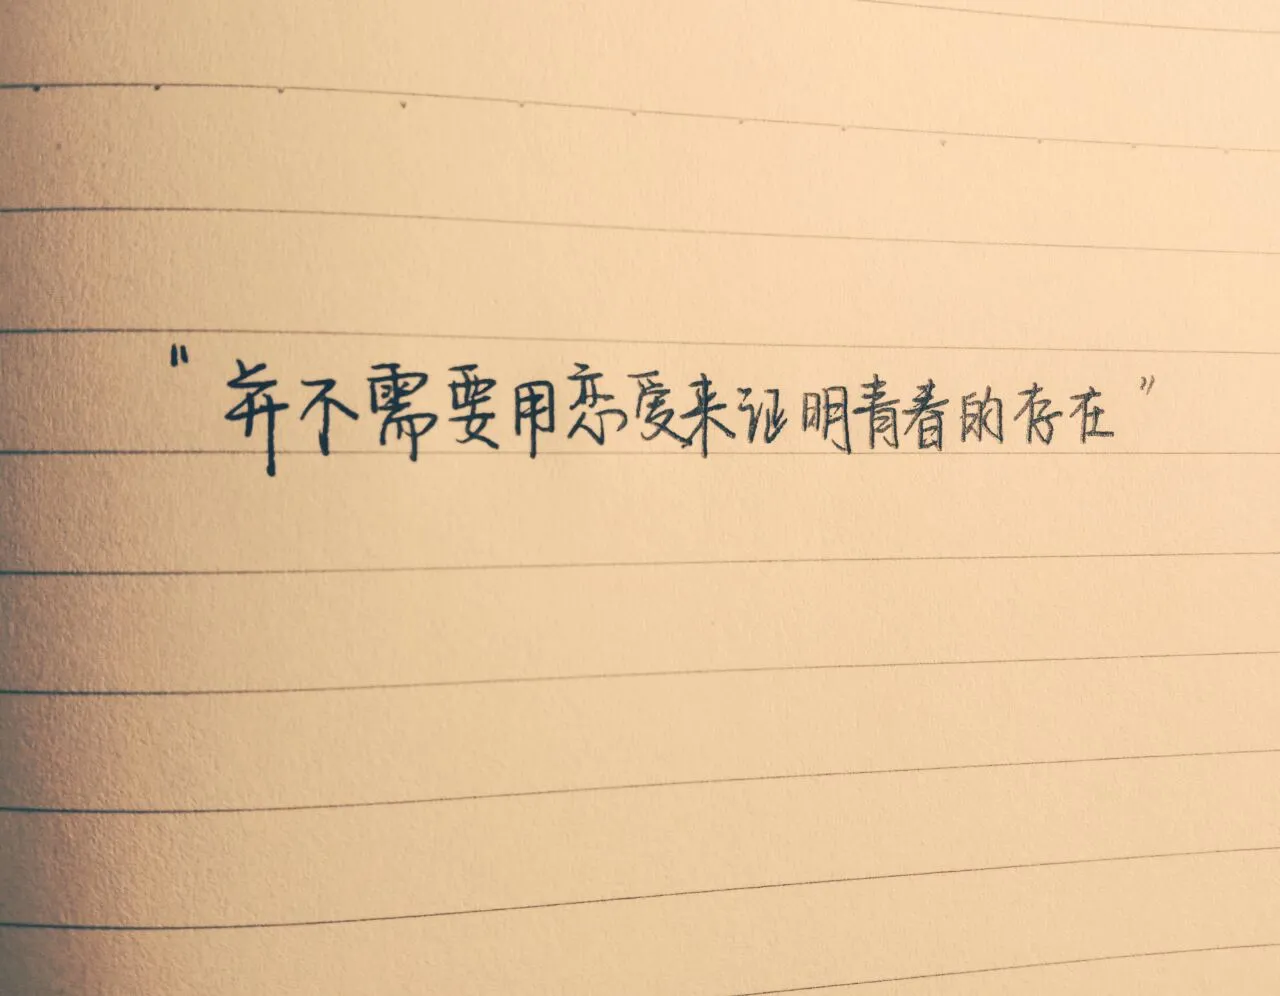 "并不需要用恋爱来证明青春的存在"